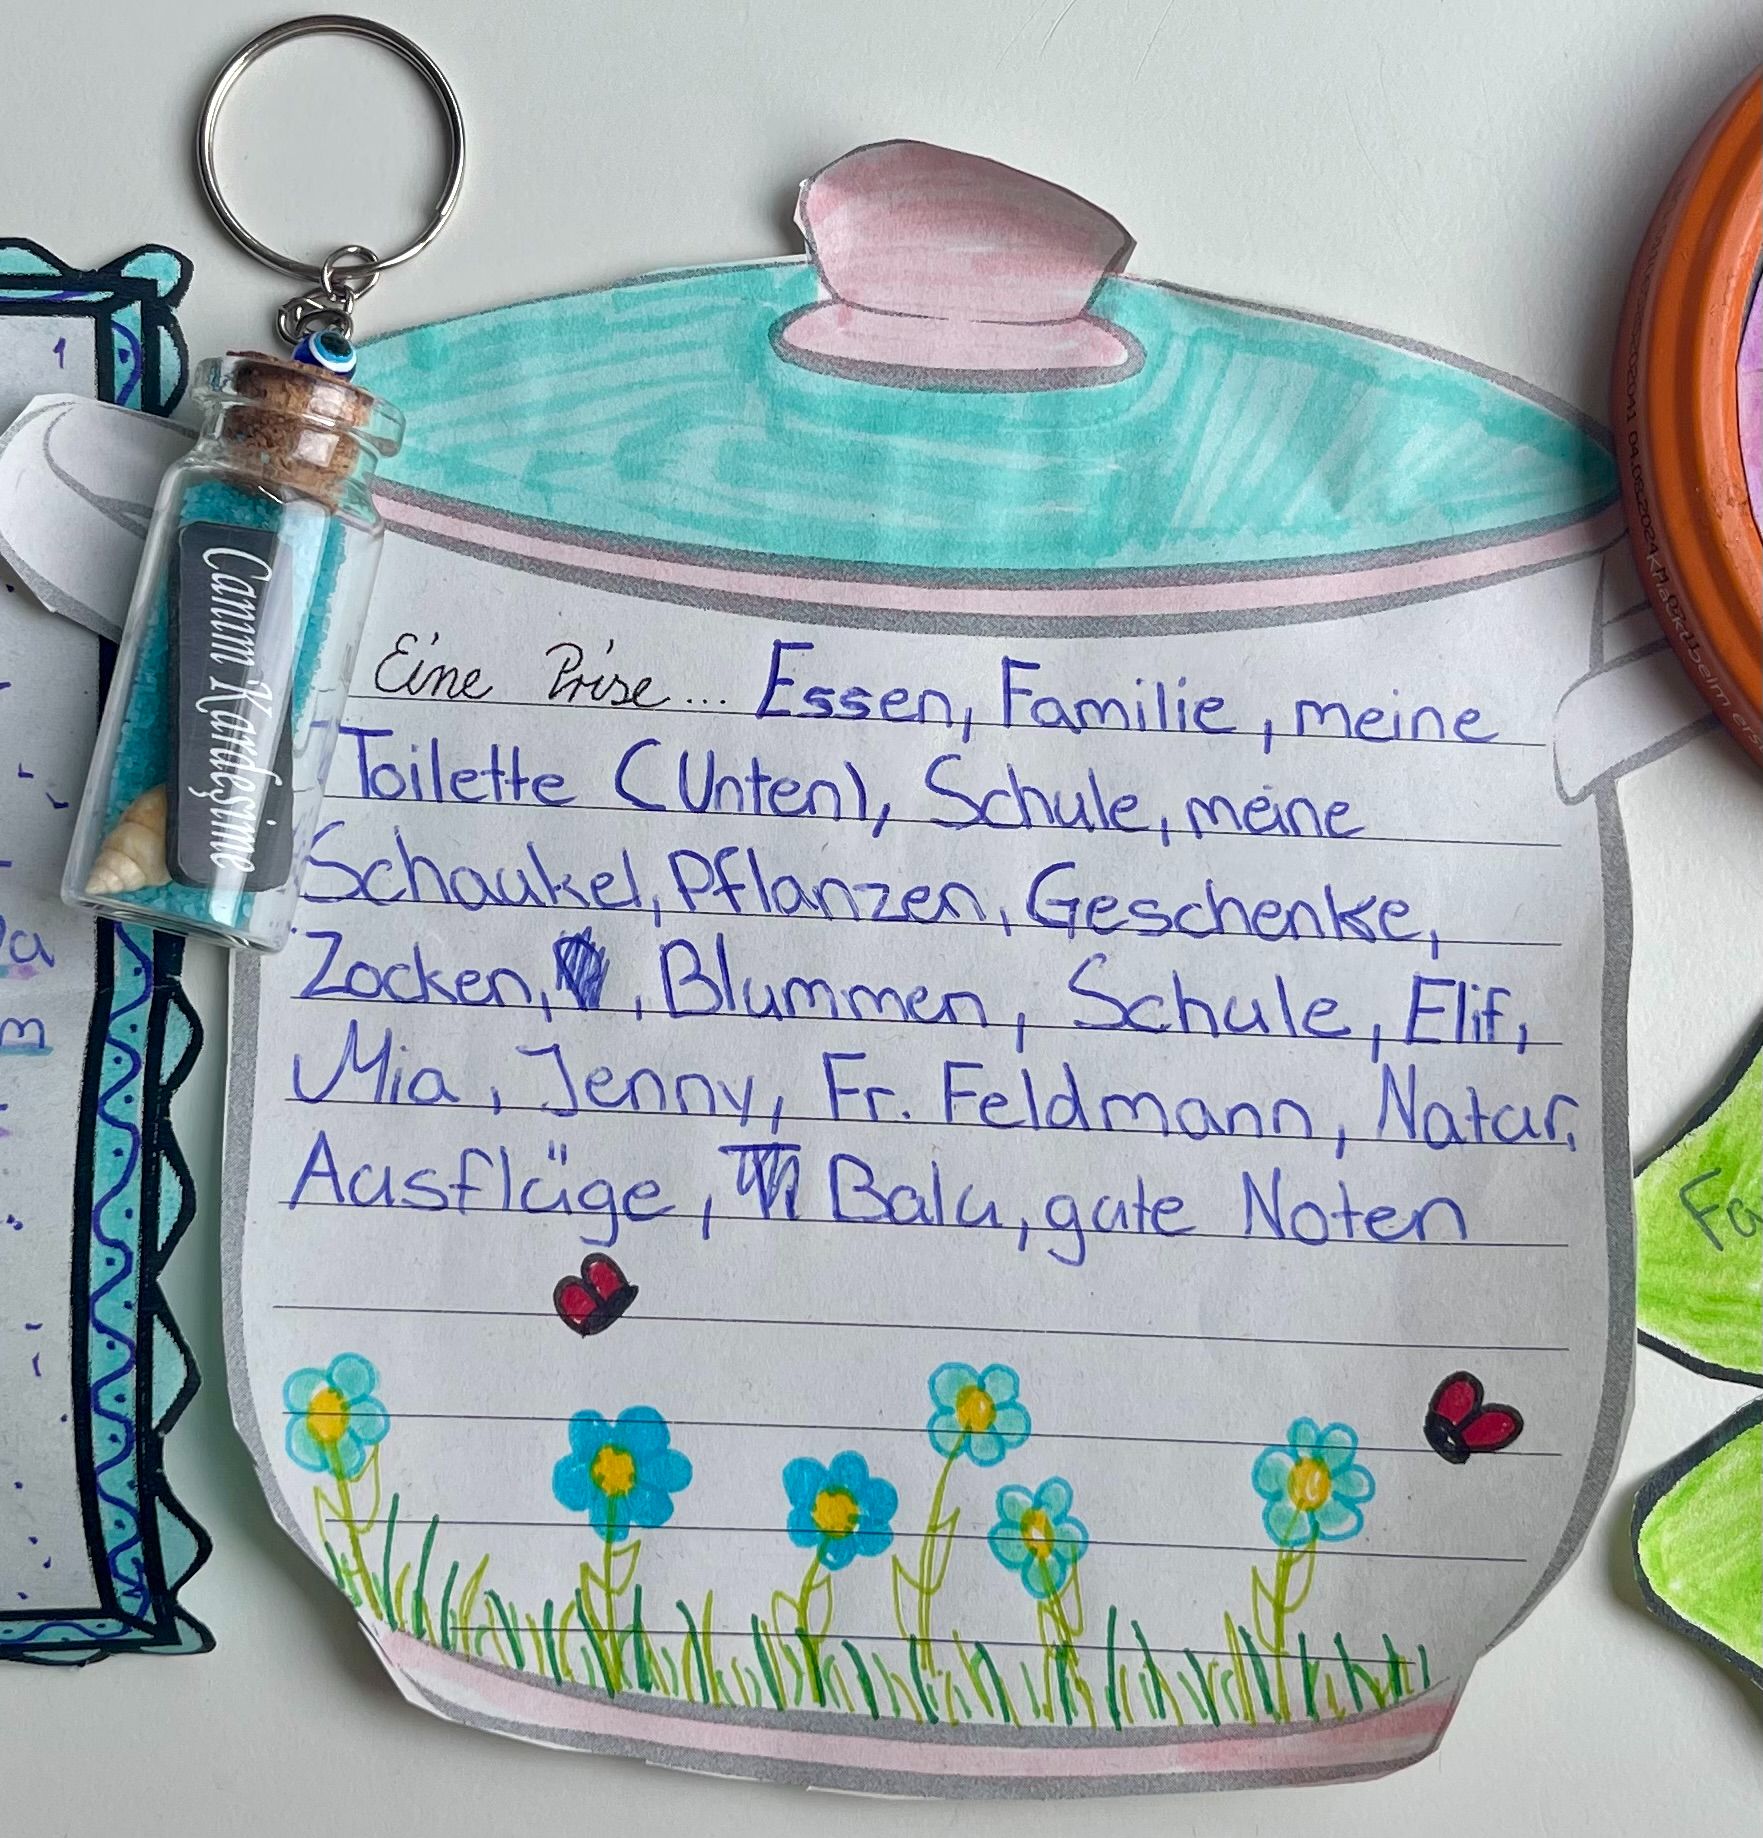 Canım Kardeşime
Eine Prise... Essen, Familie, meine
Toilette (Unten), Schule, meine
Schaukel, Pflanzen, Geschenke,
Zocken, , Blummen, Schule, Elif,
Mia, Jenny, Fr. Feldmann, Natur,
Ausflüge, Balu, gute Noten
1
a
m
Fa
04.082024